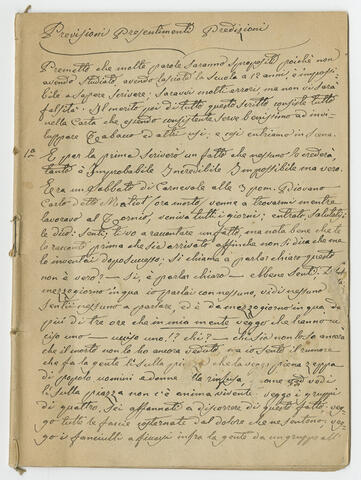 Previsioni Presentimenti Predizioni
Premetto che molte parole saranno spropositi poiche non
avendo studiato, avendo lasciato la scuola a 12 anni, è impossi-
bile a sapere scrivere: saravvi molti errori, ma non vi sara
falsità: Il merito poi di tutto questo scritto consiste tutto
nella carta che essendo consistente serve benissimo ad in-
viluppare Tabacco ed altri usi, e cosi entriamo in scena.
1ª E per la prima scriverò un fatto che nessuno lo crederà
tanto è Improbabile Incredibile Impossibile ma vero.
Era un Sabbato di Carnevale alle 3 pom. Giovane
Carlo detto Matiot ora morto, venne a trovarmi mentre
lavorava al Tornio, veniva tutti i giorni; entrato, salutato;
le dico: Senti: ti vo a raccontare un fatto, ma nota bene che te
lo racconti prima che sia arrivato affinche non si dica che me
lo inventai dopo successo: Si chiama a parlar chiaro questo
non è vero? — Si, è parlar chiaro — Ebbene Senti: Da
mezzogiorno in qua io parlai con nessuno, vidi nessuno
sentii nessuno a parlare, ed è da mezzogiorno in qua da
più di tre ore che in mia mente veggo che hanno uc-
ciso uno — ucciso uno!? chi? — chi sia non lo so ancora
che il morto non l'ho ancora veduto, ma io sento il rumore
che fa la gente
di popolo uomini e donne alla rinfusa,
sulla piazza non c'è anima vivente: veggo i gruppi
di quattro, sei affannati a discorrere di questo fatto, veg-
go tutte le faccie costernate dal dolore che ne sentono; veg-
go i fanciulli a ficcarsi infra la gente da un gruppo all'